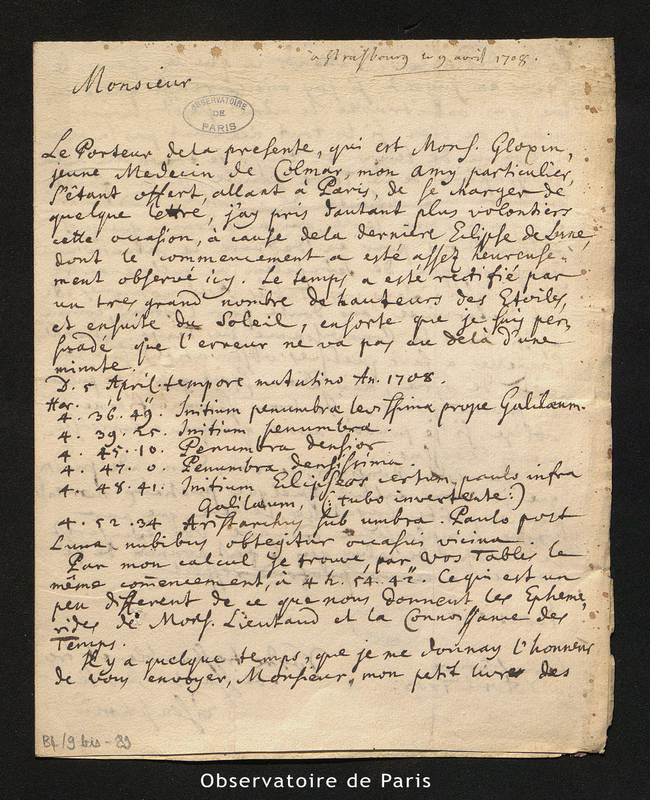 à Strasbourg le 9 avril 1708.
Monsieur
OBSERVATOIRE
DE
PARIS
Le Porteur dela presente, qui est Mons. Gloxin,
jeune Medecin de Colmar, mon amy particulier,
s'étant offert, allant à Paris, de se charger de
quelque lettre, j'ay pris dautant plus volontiers
cette occasion, à cause dela derniere Eclipse de Lune
dont le commencement a esté assez heureuse-
ment observé icy. Le temps a esté rectifié par
un tres grand nombre de hauteurs des Etoiles,
et ensuite du Soleil, ensorte que je suis per-
suadé que l'erreur ne va pas au delà d'une
minute.
D. 5 April. tempore matutino An. 1708.
Hor.
4. 36. 49. Initium penumbræ levissima prope Galilæum.
4. 39. 25. Initium penumbra.
4. 45. 10. Penumbra densior
4. 47. 0. Penumbra densissima.
4. 48. 41. Initium Eclipseos certum, paulo infra
Galilæum, (: tubo invertente:)
4. 52. 34 Aristarchus sub umbra. Paulo post
Luna nubibus obtegitur occasui vicina.
Par mon calcul je trouve, par vos Tables le
même com̃encement, à 4 h. 54. 42". Ce qui est un
peu different de ce que nous donnent les Epheme-
rides de Mons. Lieutaud et la Connoissance des
Temps.
Il y a quelque temps, que je me donnay l'honneur
de vous envoyer, Monsieur, mon petit livre des
B4/9 bis - 89
Observatoire de Paris